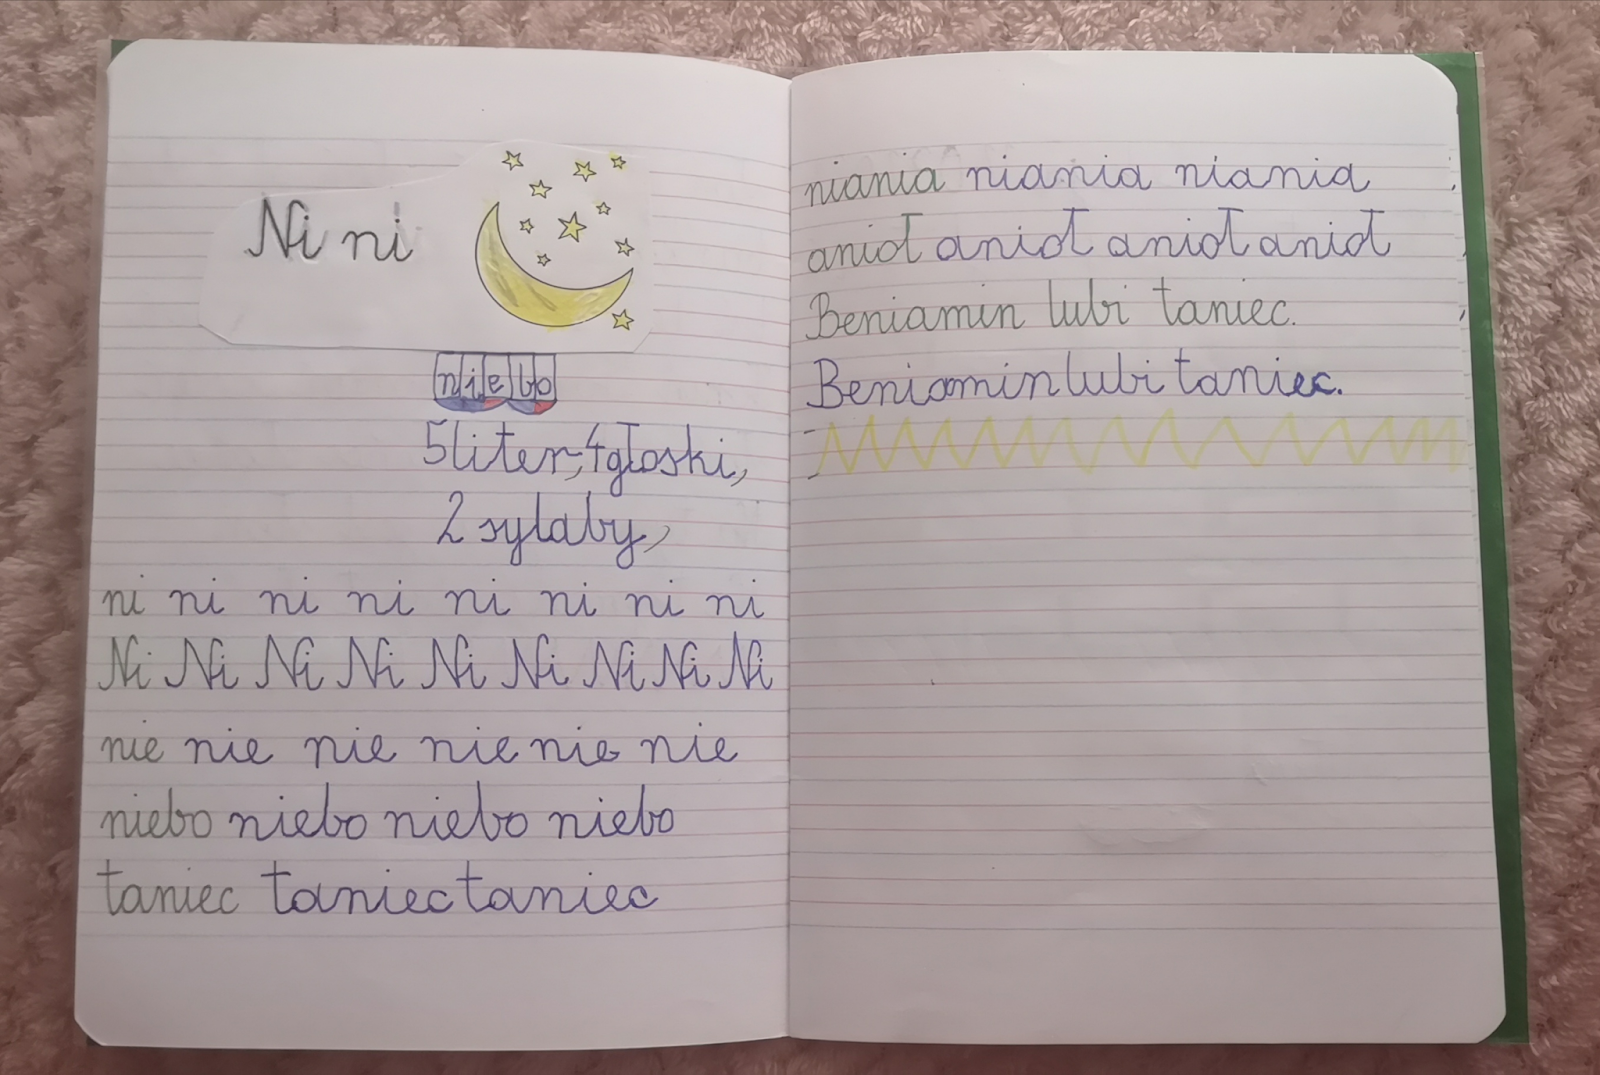 Ni ni
niebo
5 liter, 4 głoski,
2 sylaby,
ni ni ni ni ni ni ni ni
Ni Ni Ni Ni Ni Ni Ni Ni Ni
nie nie nie nie nie nie
niebo niebo niebo niebo
taniec taniec taniec
niania niania niania
anioł anioł anioł anioł
Beniamin lubi taniec.
Beniamin lubi taniec.